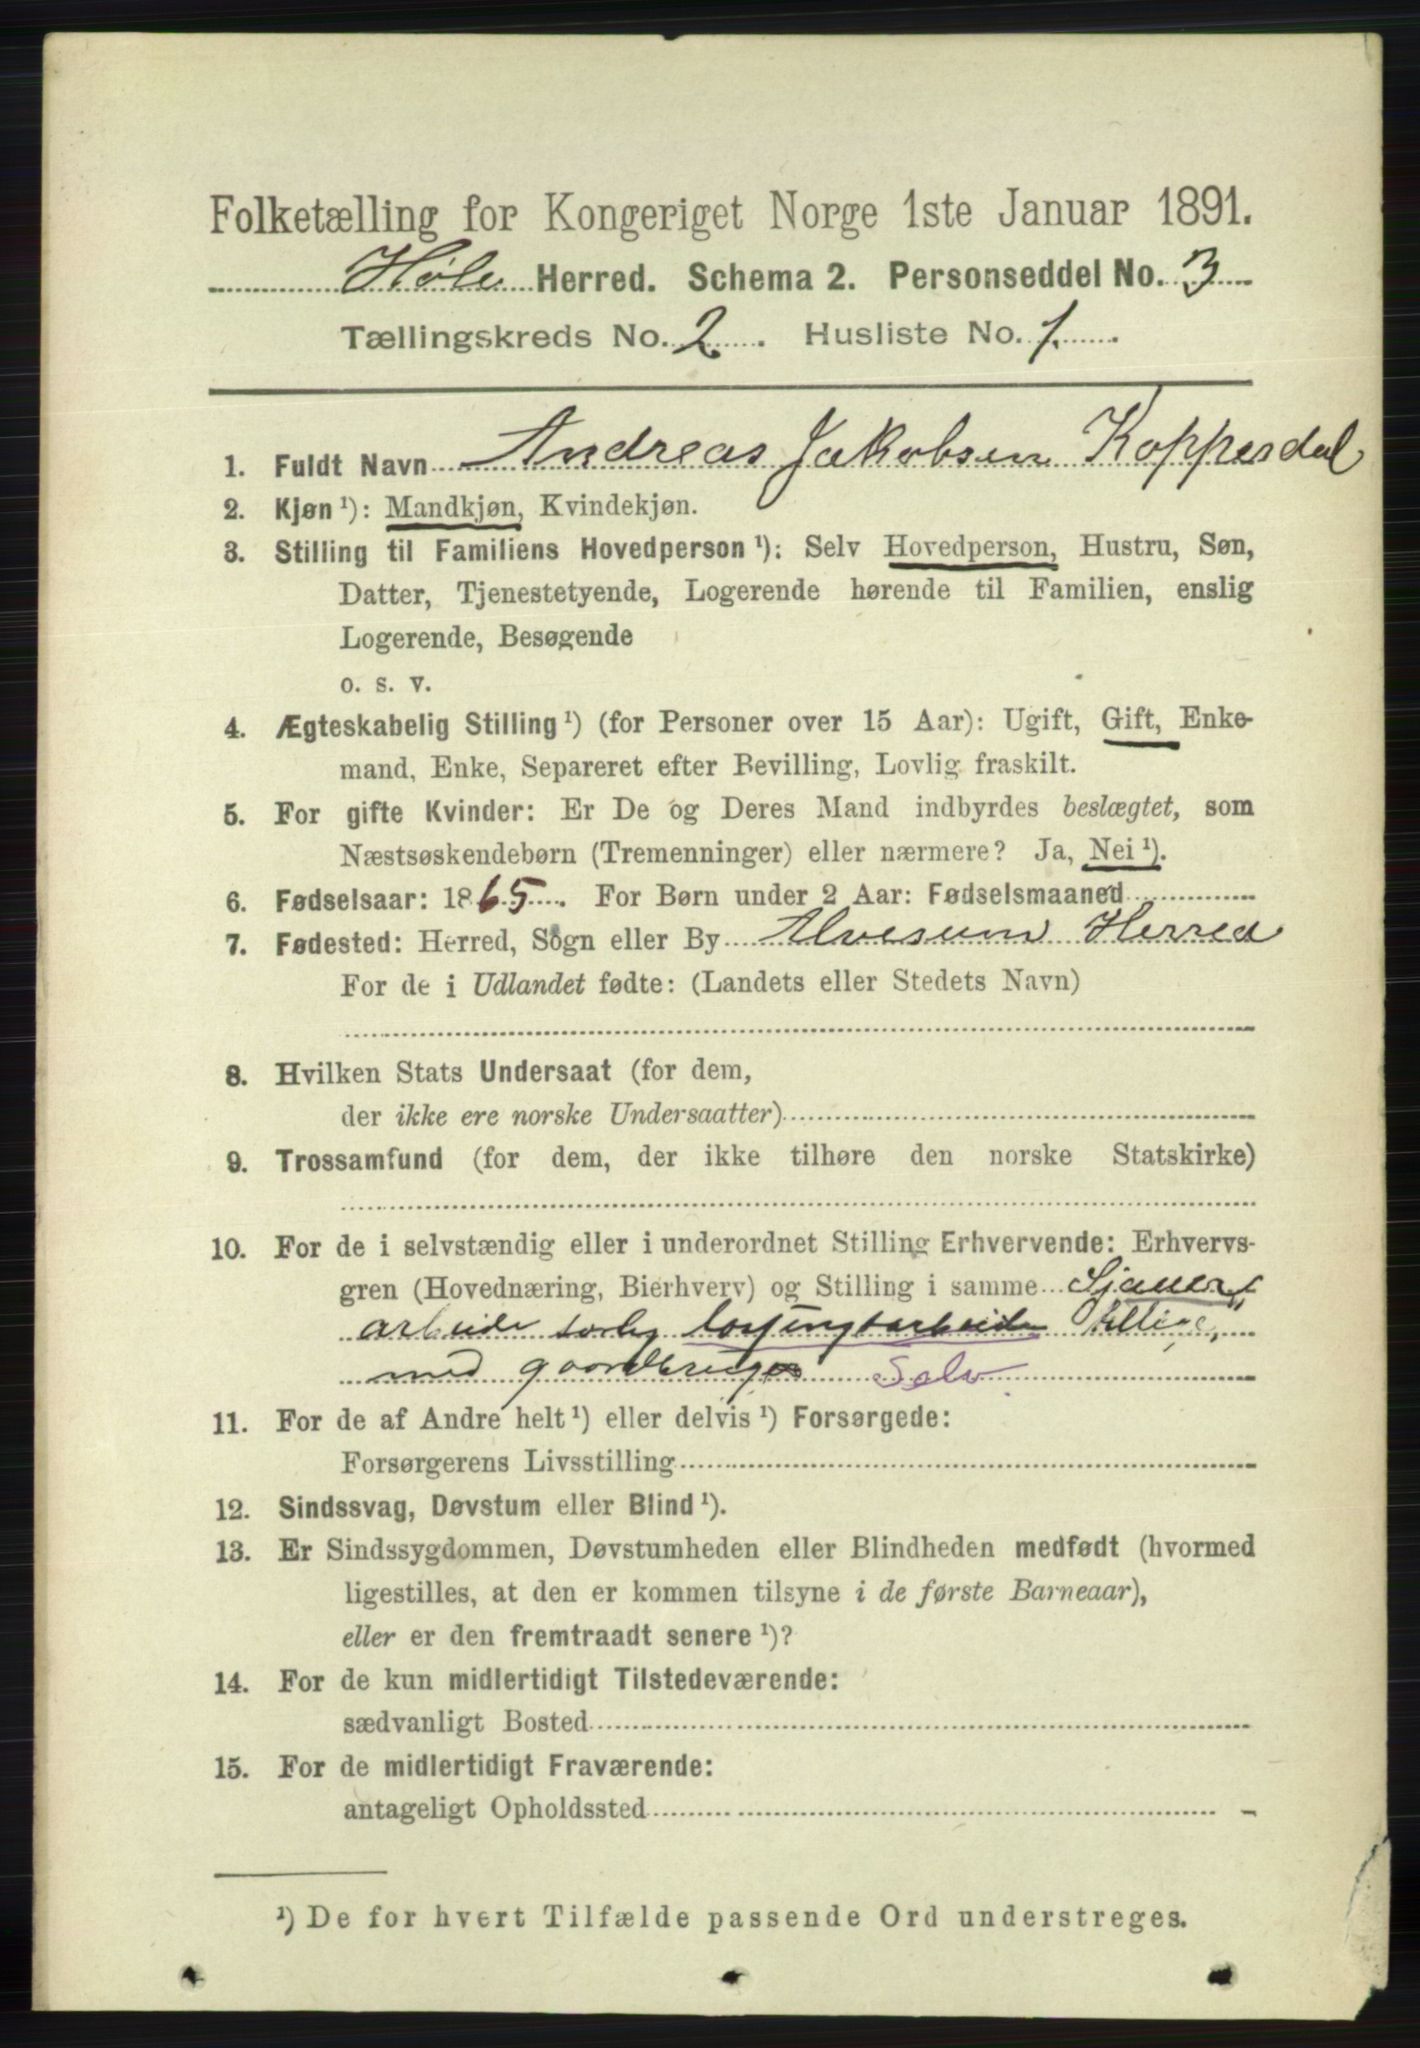 Folketælling for Kongeriget Norge 1ste Januar 1891.
Høle Herred. Schema 2. Personseddel No. 3
Tællingskreds No. 2. Husliste No. 1.
1. Fuldt Navn Andreas Jakobsen Koppesdal
2. Kjøn ¹): Mandkjøn, Kvindekjøn.
3. Stilling til Familiens Hovedperson ¹): Selv Hovedperson, Hustru, Søn,
Datter, Tjenestetyende, Logerende hørende til Familien, enslig
Logerende, Besøgende
o. s. v.
4. Ægteskabelig Stilling ¹) (for Personer over 15 Aar): Ugift, Gift, Enke-
mand, Enke, Separeret efter Bevilling, Lovlig fraskilt.
5. For gifte Kvinder: Er De og Deres Mand indbyrdes beslægtet, som
Næstsøskendebørn (Tremenninger) eller nærmere? Ja, Nei ¹).
6. Fødselsaar: 1865. For Børn under 2 Aar: Fødselsmaaned
7. Fødested: Herred, Sogn eller By Alvesund Herred
For de i Udlandet fødte: (Landets eller Stedets Navn)
8. Hvilken Stats Undersaat (for dem,
der ikke ere norske Undersaatter)
9. Trossamfund (for dem, der ikke tilhøre den norske Statskirke)
10. For de i selvstændig eller i underordnet Stilling Erhvervende: Erhvervs-
gren (Hovednæring, Bierhverv) og Stilling i samme Sjauer
arbeide
med gaardbruger Selv
11. For de af Andre helt ¹) eller delvis ¹) Forsørgede:
Forsørgerens Livsstilling
12. Sindssvag, Døvstum eller Blind ¹).
13. Er Sindssygdommen, Døvstumheden eller Blindheden medfødt (hvormed
ligestilles, at den er kommen tilsyne i de første Barneaar),
eller er den fremtraadt senere ¹)?
14. For de kun midlertidigt Tilstedeværende:
sædvanligt Bosted
15. For de midlertidigt Fraværende:
antageligt Opholdssted
¹) De for hvert Tilfælde passende Ord understreges.